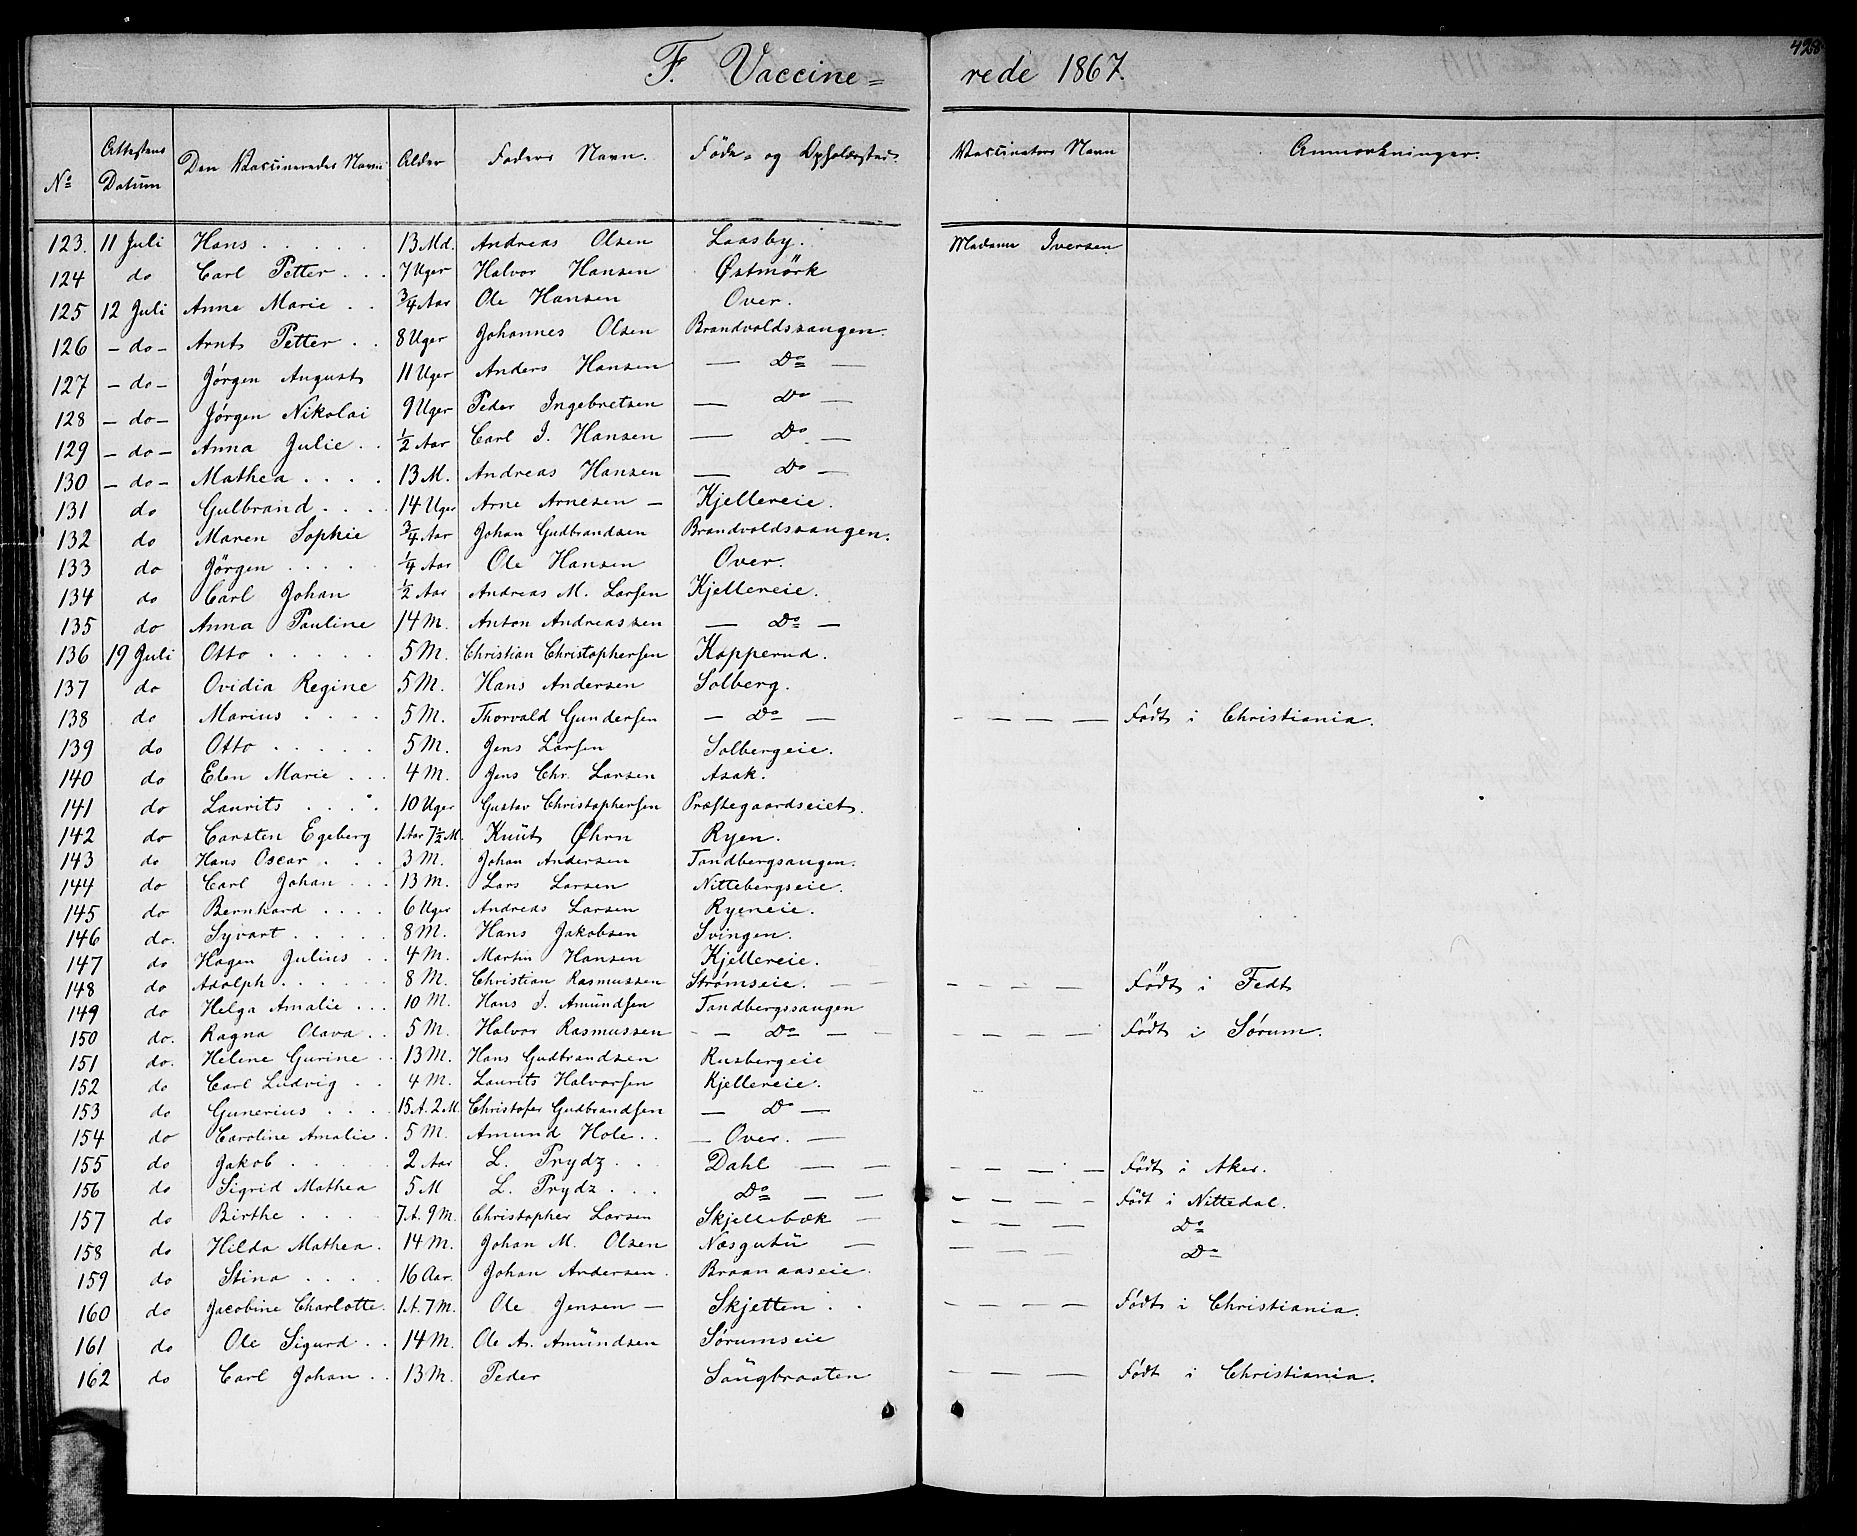 428
F. Vaccine= rede 1867.
No Attestens Datum Den Vaccineredes Navn Alder Faders Navn. Føde- og Opholdssted. Vaccinators Navn Anmærkninger.
123. 11 Juli Hans . . . . . 13 Md. Andreas Olsen Laasby. Madame Iversen.
124 do Carl Petter . . . 7 Uger Halvor Hansen Østmörk
125 12 Juli Anne Marie . . 3/4 Aar Ole Hansen Over.
126 – do – Arnt Petter . . 8 Uger Johannes Olsen Brandvoldszangen.
127 – do – Jørgen August 11 Uger Anders Hansen — Do —
128 – do – Jørgen Nikolai 9 Uger Peder Ingebretsen — Do —
129 – do – Anna Julie . . 1/2 Aar Carl J. Hansen — Do. —
130 – do – Mathea . . . . 13 M. Andreas Hansen — Do —
131 do Gulbrand . . . . 14 Uger Arne Arnesen – Kjellereie.
132 do Maren Sophie 3/4 Aar Johan Gudbrandsen Brandvoldszangen.
133 do Jörgen . . . . . 1/4 Aar Ole Hansen Over.
134 do Carl Johan 1/2 Aar Andreas M. Larsen Kjellereie.
135 do Anna Pauline 14 M. Anton Andreassen — Do —
136 19 Juli Otto . . . . . 5 M. Christian Christophersen Kopperud.
137 do Ovidia Regine 5 M. Hans Andersen Solberg.
138 do Marius . . . . 5 M. Thorvald Gundersen — Do — – — — — Födt i Christiania.
139 do Otto . . . . . 5 M. Jens Larsen Solbergeie.
140 do Elen Marie . . . 4 M. Jens Chr. Larsen Asak.
141 do Laurits . . . . 10 Uger Gustav Christophersen Præstegaardseiet.
142 do Carsten Egeberg 1 Aar 7 1/2 M. Knüt Øhrn Ryen.
143 do Hans Oscar . . . 3 M. Johan Andersen Tandbergsaugen.
144 do Carl Johan . . . 13 M. Lars Larsen Nittebergseie.
145 do Bernhard . . . . 6 Uger Andreas Larsen Ryeneie.
146 do. Syvart . . . . . 8 M. Hans Jakobsen Svingen.
147 do Hagen Julius . . 4 M. Martin Hansen Kjellereie.
148 do Adolph . . . . . . 8 M. Christian Rasmussen Strømseie. — — – — — — Födt i Fedt
149 do Helga Amalie . . . 10 M. Hans J. Amündsen Tandbergssaugen
150 do. Ragna Olava . . 5 M. Halvor Rasmussen – — Do — — — — — Födt i Sörum.
151 do. Helene Gurine . . 13 M. Hans Gudbrandsen Rusbergeie
152 do Carl Ludvig . . 4 M. Laurits Halvorsen Kjellereie.
153 do Gunerius . . . . 15 A. 2 M. Christofer Gudbrandsen — Do —
154 do Caroline Amalie . 5 M. Amund Hole . . — Over. —
155 do Jakob . . . . . 2 Aar L. Prydz . . . Dahl — — — — — — Födt i Aker.
156 do Sigrid Mathea 5 M L. Prydz . . . Do — — – — — – Födt i Nittedal.
157 do Birthe . . . . . 7 A. 9 M. Christopher Larsen Skjellebæk — – — — Do
158 do Hilda Mathea . 14 M. Johan M. Olsen Næsgutü — – — — — Do
159 do Stina . . . . 16 Aar. Johan Andersen . Braanaaseie.
160 do Jacobine Charlotte. 1 A. 7 M. Ole Jensen — Skjetten . . – — — — Födt i Christiania.
161 do Ole Sigurd . . 14 M. Ole A. Amündsen Sörumseie
162 do Carl Johan . . 13 M. Peder Saügbraaten – — — — Födt i Christiania.